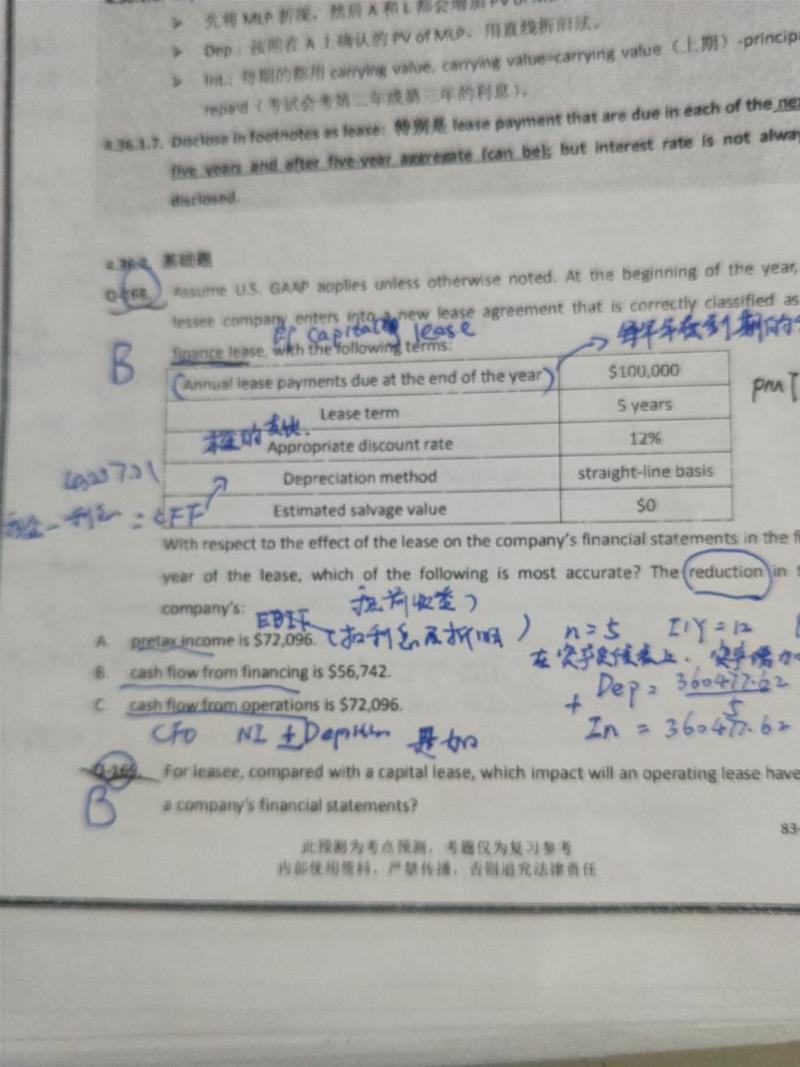 先将 MLP 折现，然后 A 和 L 都会增加 PV of
Dep.: 按照在 A 上确认的 PV of MLP，用直线折旧法。
Int.: 每期的都用 carrying value, carrying value=carrying value（上期）-princip
repaid（考试会考第二年或第三年的利息）。
4.36.1.7. Disclose in footnotes as lease: 特别是 lease payment that are due in each of the nex
five years and after five-year aggregate (can be); but interest rate is not alway
disclosed.
基础题
Q-168. Assume U.S. GAAP applies unless otherwise noted. At the beginning of the year,
lessee company enters into a new lease agreement that is correctly classified as
capital lease
finance lease, with the following terms:
B
Annual lease payments due at the end of the year $100,000
Lease term 5 years
Appropriate discount rate 12%
Depreciation method straight-line basis
Estimated salvage value $0
= CFF
With respect to the effect of the lease on the company's financial statements in the fi
year of the lease, which of the following is most accurate? The reduction in t
company's:
EBIT
A. pretax income is $72,096. (扣利息及折旧)
n=5 I/Y=12
B. cash flow from financing is $56,742.
+ Dep = 360477.62
5
C. cash flow from operations is $72,096.
In = 360477.62
CFO NI 是加
Q-169. For leasee, compared with a capital lease, which impact will an operating lease have
B
a company's financial statements?
83-
此预测为考点预测，考题仅为复习参考
内部使用资料，严禁传播，否则追究法律责任